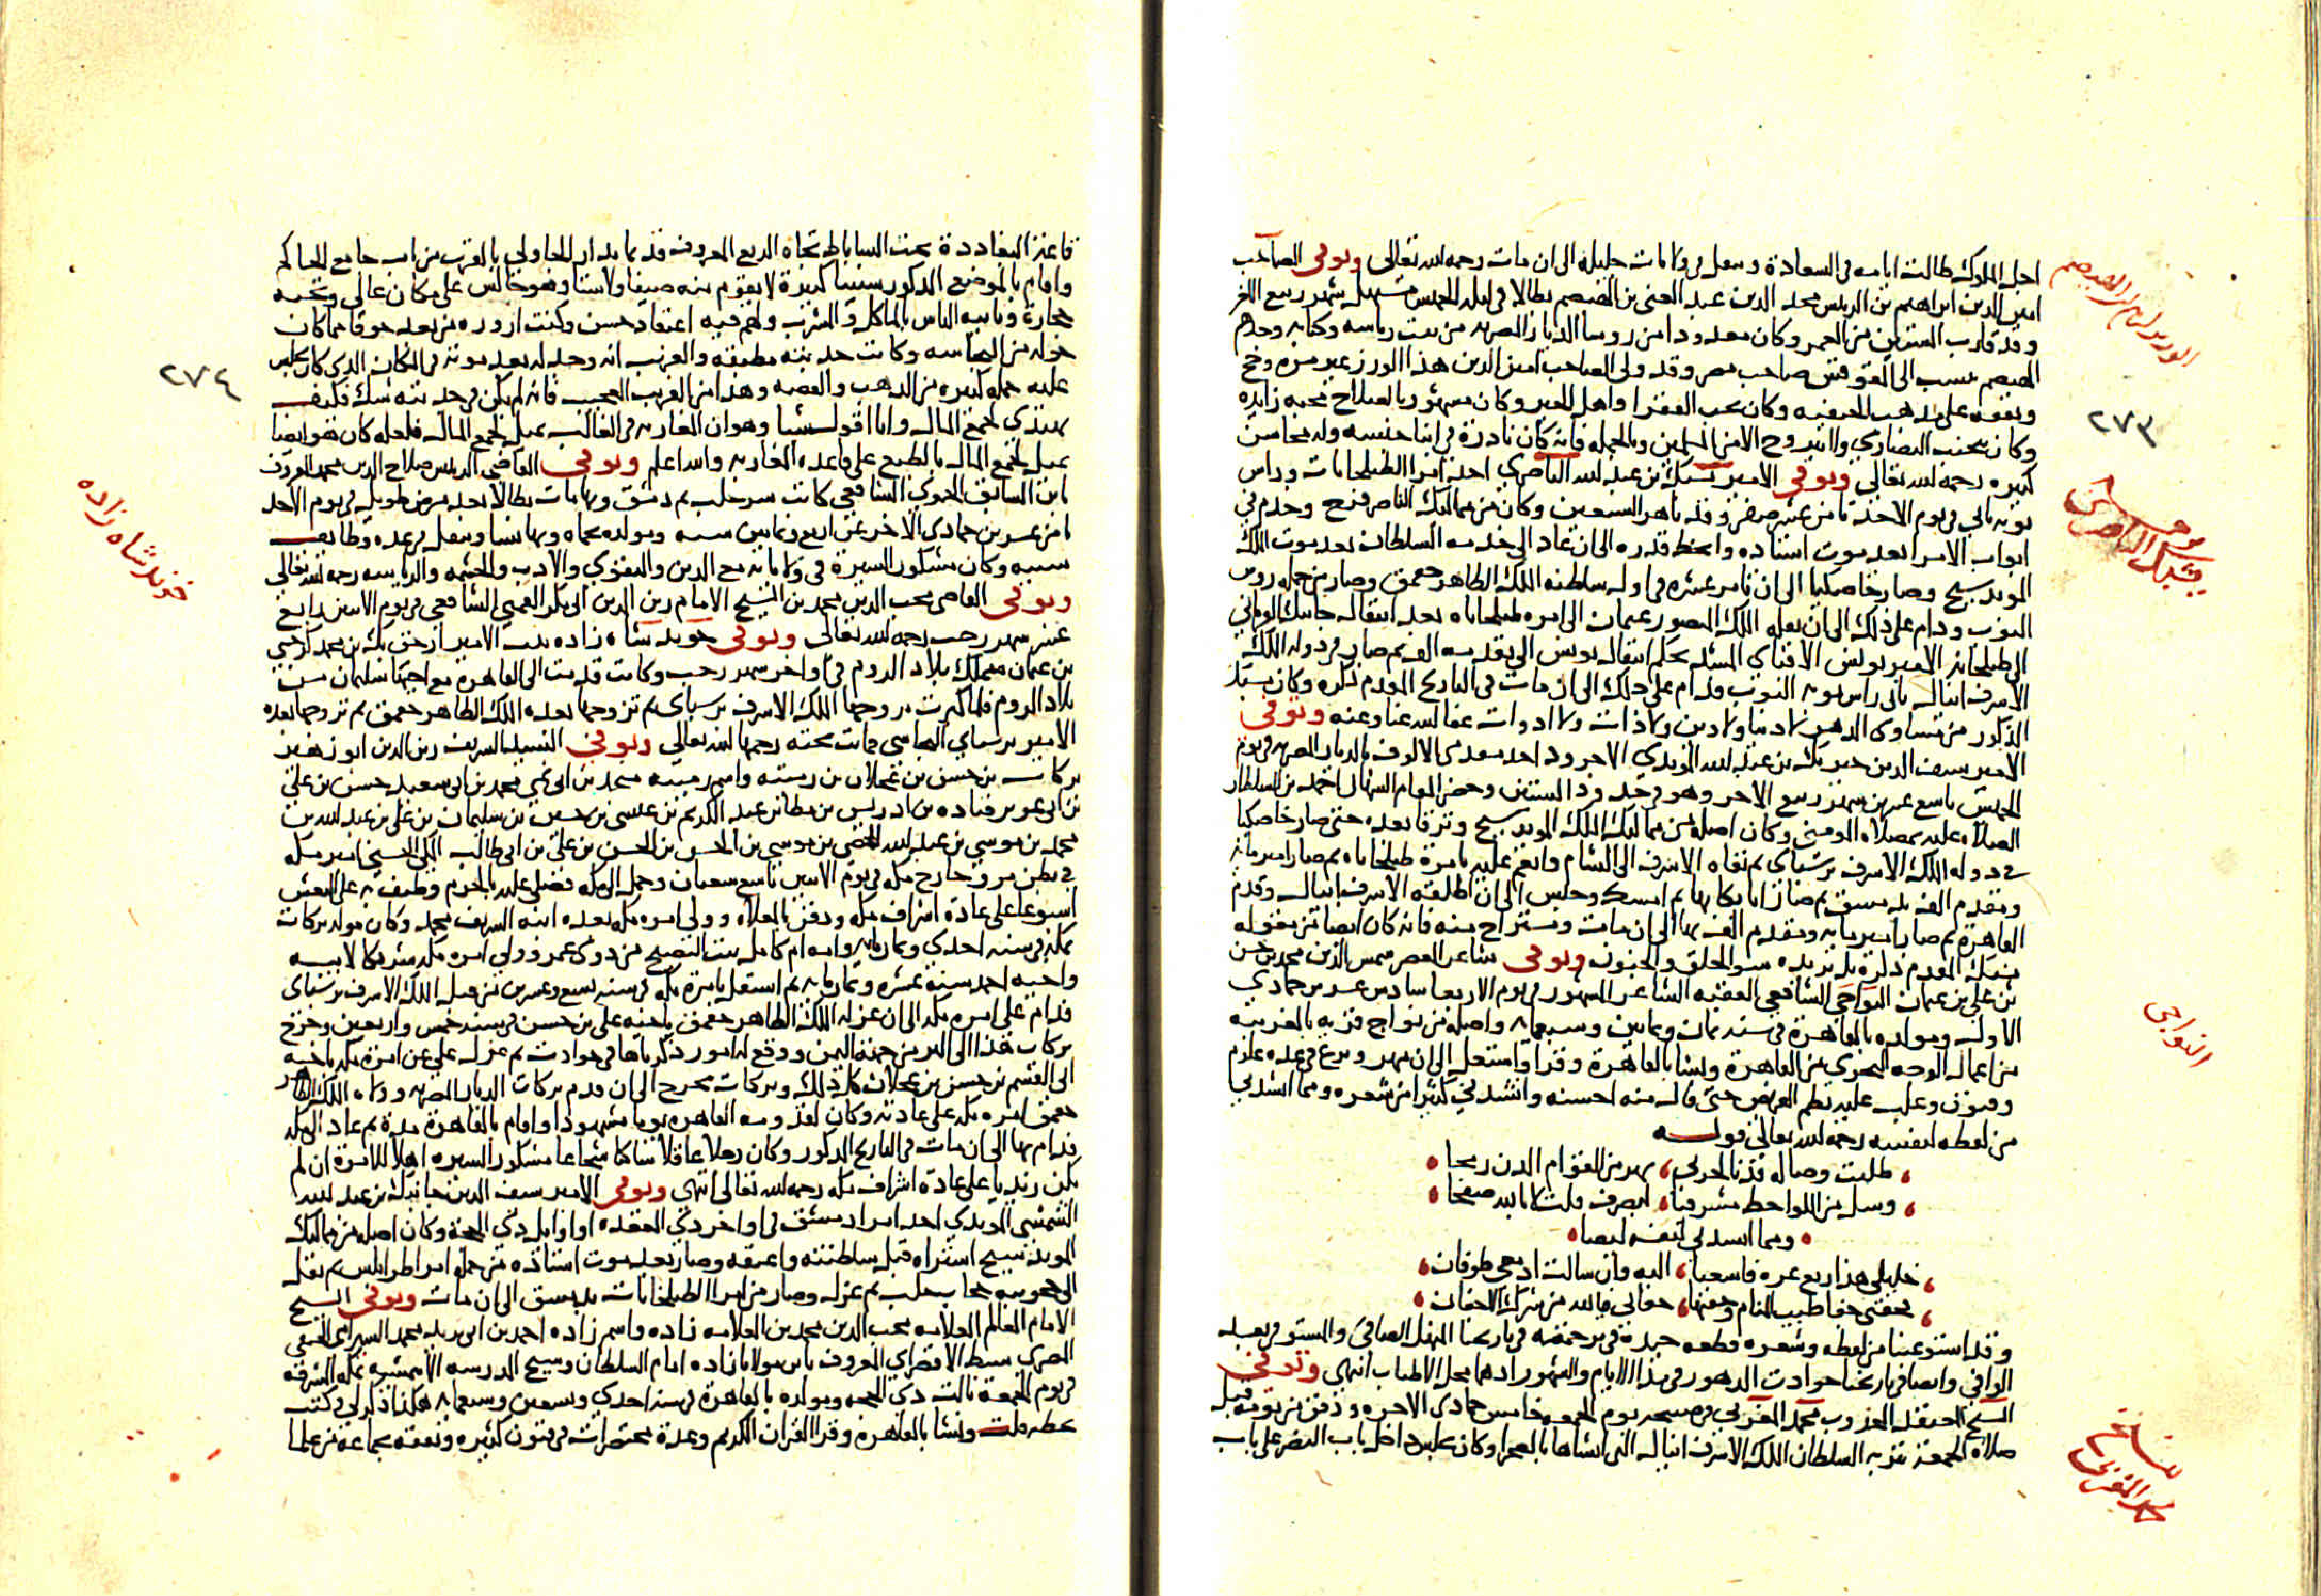 اجل الملوك طالت ايامه في السعادة وتنقل في ولايات جليلة الى ان مات رحمه الله تعالى وتوفى الصاحب
امين الدين ابراهيم بن الرئيس مجد الدين عبد الغني بن الهيصم بطالا في ليلة الخميس مستهل شهر ربيع الاخر
وقد قارب الستين من العمر وكان معدودا من روسا الديار المصرية من بيت رياسة وكتابة وجدهم
الهيصم ينسب الى المقوقس صاحب مصر وقد ولى الصاحب امين الدين هذا الوزر غير مرة وحج
وتفقه على مذهب الحنفية وكان يحب الفقرا واهل الخير وكان مشهورا بالصلاح محبة زايدة
وكان يجتنب النصارى ولا يتزوج الا من المسلمين وبالجملة فانه كان نادرة في ابنا جنسه وله محاسن
كثيرة رحمه الله تعالى وتوفى الامير يشبك بن عبد الله الناصري احد امرا الطبلخانات وراس
نوبة ثاني في يوم الاحد ثامن عشر صفر وقد ناهز السبعين وكان من مماليك الناصر فرج وخدم في
ابواب الامرا بعد موت استاذه وانحط قدره الى ان عاد الى خدمة السلطان بعد موت الملك
المويد شيخ وصار خاصكيا الى ان تامر عشرة في اول سلطنة الملك الظاهر جقمق وصار من جملة روس
النوب ودام على ذلك الى ان نقله الملك المنصور عثمان الى امرة طبلخاناه بعد انتقال جانبك
الى طبلخاناة الامير يونس الاقباي المشد بحكم انتقال يونس الى تقدمة الف ثم صار في دولة الملك
الاشرف اينال ثاني راس نوبة النوب فدام على ذلك الى ان مات في التاريخ المقدم ذكره وكان يشبك
المذكور من مساوى الدهر لا دنيا ولا دين ولا ذات ولا ادوات عفا الله عنا وعنه وتوفى
الامير سيف الدين خير بك بن عبد الله المويدي الاجرود احد مقدمي الالوف بالديار المصرية في يوم
الخميس تاسع عشرين شهر ربيع الاخر وهو في حدود الستين وحضر المقام الشهابي احمد بن السلطان
الصلاة عليه بمصلاة المومني وكان اصله من مماليك الملك المويد شيخ وترقا بعده حتى صار خاصكيا
في دولة الملك الاشرف برسباي ثم نفاه الاشرف الى الشام وانعم عليه بامرة طبلخاناه ثم صار امير ماية
ومقدم الف بدمشق ثم صار اتابكا بها ثم امسك وحبس الى ان اطلقه الاشرف اينال وقدم
القاهرة ثم صار امير ماية ومقدم الف بها الى ان مات ومستراح منه فانه كان ايضا من مقولة
يشبك المقدم ذكره بل يزيده سو الخلق والجنون وتوفى شاعر العصر شمس الدين محمد بن حسن
بن علي بن عثمان النواجي الشافعي الفقيه الشاعر المشهور في يوم الاربعا سادس عشرين جمادى
الاولى ومولده بالقاهرة في سنة ثمان وثمانين وسبعماية واصله من نواج قرية بالغربية
من اعمال الوجه البحري من القاهرة ونشا بالقاهرة وقرا واشتغل الى ان مهر وبرع في عدة علوم
وفنون وغلب عليه نظم القريض حتى قال منه احسنه وانشدني كثيرا من شعره ومما انشدني
من لفظه لنفسه رحمه الله تعالى قوله
طلبت وصاله فدنا لحربي يهز من القوام اللدن رمحا
وسل من اللواحظ مشرفيا ليضرب قلت لا بالله صفحا
ومما انشدني لنفسه ايضا
خليلي هذا ربع عزة فاسعيا اليه وان سالت ادمعي طوفان
فجفني جفا طيب المنام وجفنها جفاني فيا لله من شرك الاجفان
وقد استوعبنا من لفظه وشعره قطعة جيدة في ترجمته في تاريخنا المنهل الصافي والمستوفى بعد
الوافي وايضا في تاريخنا حوادث الدهور في مدا الايام والشهور اذ هما محل الاطناب انتهى وتوفى
الشيخ المعتقد المجذوب محمد المغربي في صبيحة يوم الجمعة خامس جمادى الاخرة ودفن من يومه قبل
صلاة الجمعة بتربة السلطان الملك الاشرف اينال التي انشاها بالصحرا وكان يجلس داخل باب النصر على باب
الوزير ابراهيم بن الهيصم
٢٧٣
يشبك الناصري
النواجي
الشيخ
محمد المغربي
قاعة البغاددة تحت الساباط تجاه الربع المعروف قديما بدار الجاولي بالقرب من باب جامع الحاكم
واقام بالموضع المذكور سنينا كثيرة لا يقوم منه صيفا ولا شتا وهو جالس على مكان عالي وتحته
حجارة وياتيه الناس بالماكل والمشرب ولهم فيه اعتقاد حسن وكنت ازوره من بعد خوفا مما كان
حوله من النجاسة وكانت جذبته مطبقة والغريب انه وجد له بعد موته في المكان الذي كان يجلس
عليه جملة كثيرة من الذهب والفضة وهذا من الغريب العجيب فانه لم يكن في جذبته شك فكيف
يهتدي لجمع المال وانا اقول شيا وهو ان المغاربة في الغالب يميل لجمع المال فلعله كان هو ايضا
يميل لجمع المال بالطبع على قاعدة المغاربة والله اعلم وتوفى القاضي الرئيس صلاح الدين محمد المعروف
بابن السابق الحموي الشافعي كاتب سر حلب ثم دمشق وبها مات بطالا بعد مرض طويل في يوم الاحد
ثامن عشرين جمادى الاخر عن اربع وثمانين سنة ومولده بحماة وبها نشا وتنقل في عدة وظايف
سنية وكان مشكور السيرة في ولاياته مع الدين والتقوى والادب والحشمة والرياسة رحمه الله تعالى
وتوفى القاضي محب الدين محمد بن الشيخ الامام زين الدين ابي بكر القمني الشافعي في يوم الاثنين رابع
عشر شهر رجب رحمه الله تعالى وتوفى خوند شاه زاده بنت الامير ارخن بك بن محمد كرشجي
بن عثمان متملك بلاد الروم في اواخر شهر رجب وكانت قدمت الى القاهرة مع اخيها سليمان من
بلاد الروم فلما كبرت تزوجها الملك الاشرف برسباي ثم تزوجها بعده الملك الظاهر جقمق ثم تزوجها بعده
الامير برسباي البجاسي فماتت تحته رحمها الله تعالى وتوفى السيد الشريف زين الدين ابو زهير
بركات بن حسن بن عجلان بن رميثة واسم رميثة منجد بن ابي نمي محمد بن ابي سعيد حسن بن علي
بن ابي عزيز قتادة بن ادريس بن مطاعن بن عبد الكريم بن عيسى بن حسين بن سليمان بن علي بن عبد الله بن
محمد بن موسى بن عبد الله المحض بن موسى بن الحسن بن الحسن بن علي بن ابي طالب المكي الحسني امير مكة
في بطن مر وخارج مكة في يوم الاثنين تاسع شعبان وحمل الى مكة فصلي عليه بالحرم وطيف به على النعش
اسبوعا على عادة اشراف مكة ودفن بالمعلاة وولى امرة مكة بعده ابنه الشريف محمد وكان مولد بركات
بمكة في سنة احدى وثمانماية وامه ام كامل بنت النصيح من ذوي عمر وولي امرة مكة شريكا لابيه
واخيه احمد سنة عشرة وثمانماية ثم استقل بامرة مكة في سنة تسع وعشرين من قبل الملك الاشرف برسباي
فدام على امرة مكة الى ان عزله الملك الظاهر جقمق باخيه علي بن حسن في سنة خمس واربعين وخرج
بركات هذا الى البر من جهة اليمن ووقع له امور ذكرناها في حوادث ثم عزل علي عن امرة مكة باخيه
ابي القسم بن حسن بن عجلان كل ذلك وبركات مخرج الى ان قدم بركات الديار المصرية وولاه الملك الظاهر
جقمق امرة مكة على عادته وكان لقدومه القاهرة يوما مشهودا واقام بالقاهرة مدة ثم عاد الى مكة
فدام بها الى ان مات في التاريخ المذكور وكان رجلا عاقلا ساكتا شجاعا مشكور السيرة اهلا للامرة ان لم
يكن زيديا على عادة اشراف مكة رحمه الله تعالى انتهى وتوفى الامير سيف الدين جانبك بن عبد الله
الشمسي المويدي احد امرا دمشق في اواخر ذي القعدة او اوايل ذي الحجة وكان اصله من مماليك
المويد شيخ اشتراه قبل سلطنته واعتقه وصار بعد موت استاذه من جملة امرا طرابلس ثم نقل
الى حجوبية حجاب حلب ثم عزل وصار من امرا الطبلخانات بدمشق الى ان مات وتوفى الشيخ
الامام العالم العلامة محب الدين محمد بن العلامة زاده واسم زاده احمد بن ابي يزيد محمد السيرامي الحنفي
المصري سبط الاقصراي المعروف بابن مولانا زاده امام السلطان وشيخ المدرسة الاشرفية بمكة المشرفة
في يوم الجمعة ثالث ذي الحجة ومولده بالقاهرة في سنة احدى وتسعين وسبعماية هكذا ذكر لي وكتب
بخطه قلت ونشا بالقاهرة وقرا القران الكريم وعدة مختصرات في فنون كثيرة وتفقه بجماعة من علما
٢٧٤
خوند شاه زاده